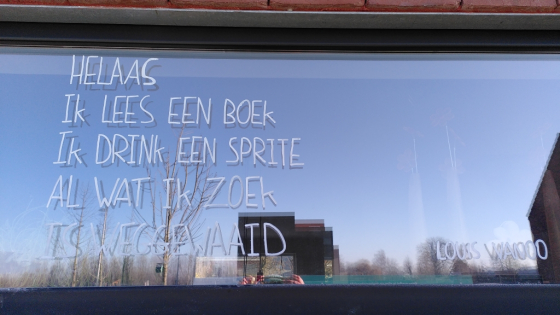 HELAAS
Ik LEES EEN BOEK
Ik DRINK EEN SPRITE
AL WAT IK ZOEK
IS WEGGEWAAID
LOUIS